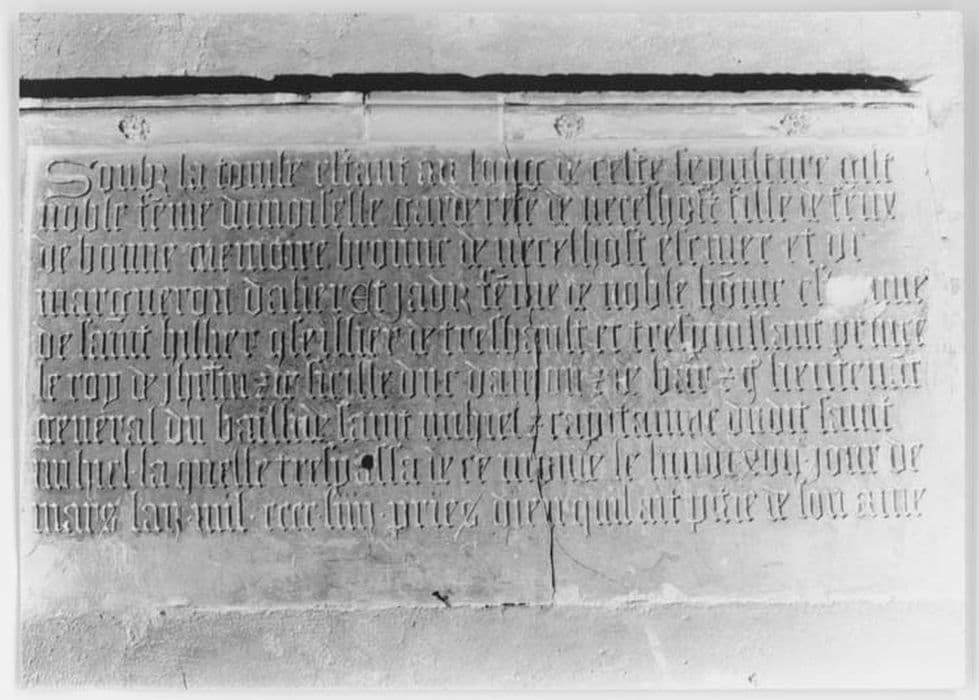 Soubz la tombe estant au long de ceste sepulture gist
noble fẽme damoiselle marguerete de necelhost fille de feux
de bonne memoire brouuc de necelhost escuier et de
margueron dabier Et jadiz fẽme de noble hõme
de saint hillier cõseillier de treshault et trespuissant prince
le roy de jhrlm z de sicille duc danjou z de bar z lieuten̄t
general du bailliage saint mihiel z capitainne dudit saint
mihiel la quelle trespassa de ce monde le lundi xviij jour de
mars lan mil cccc priez dieu quil ait pitie de son ame